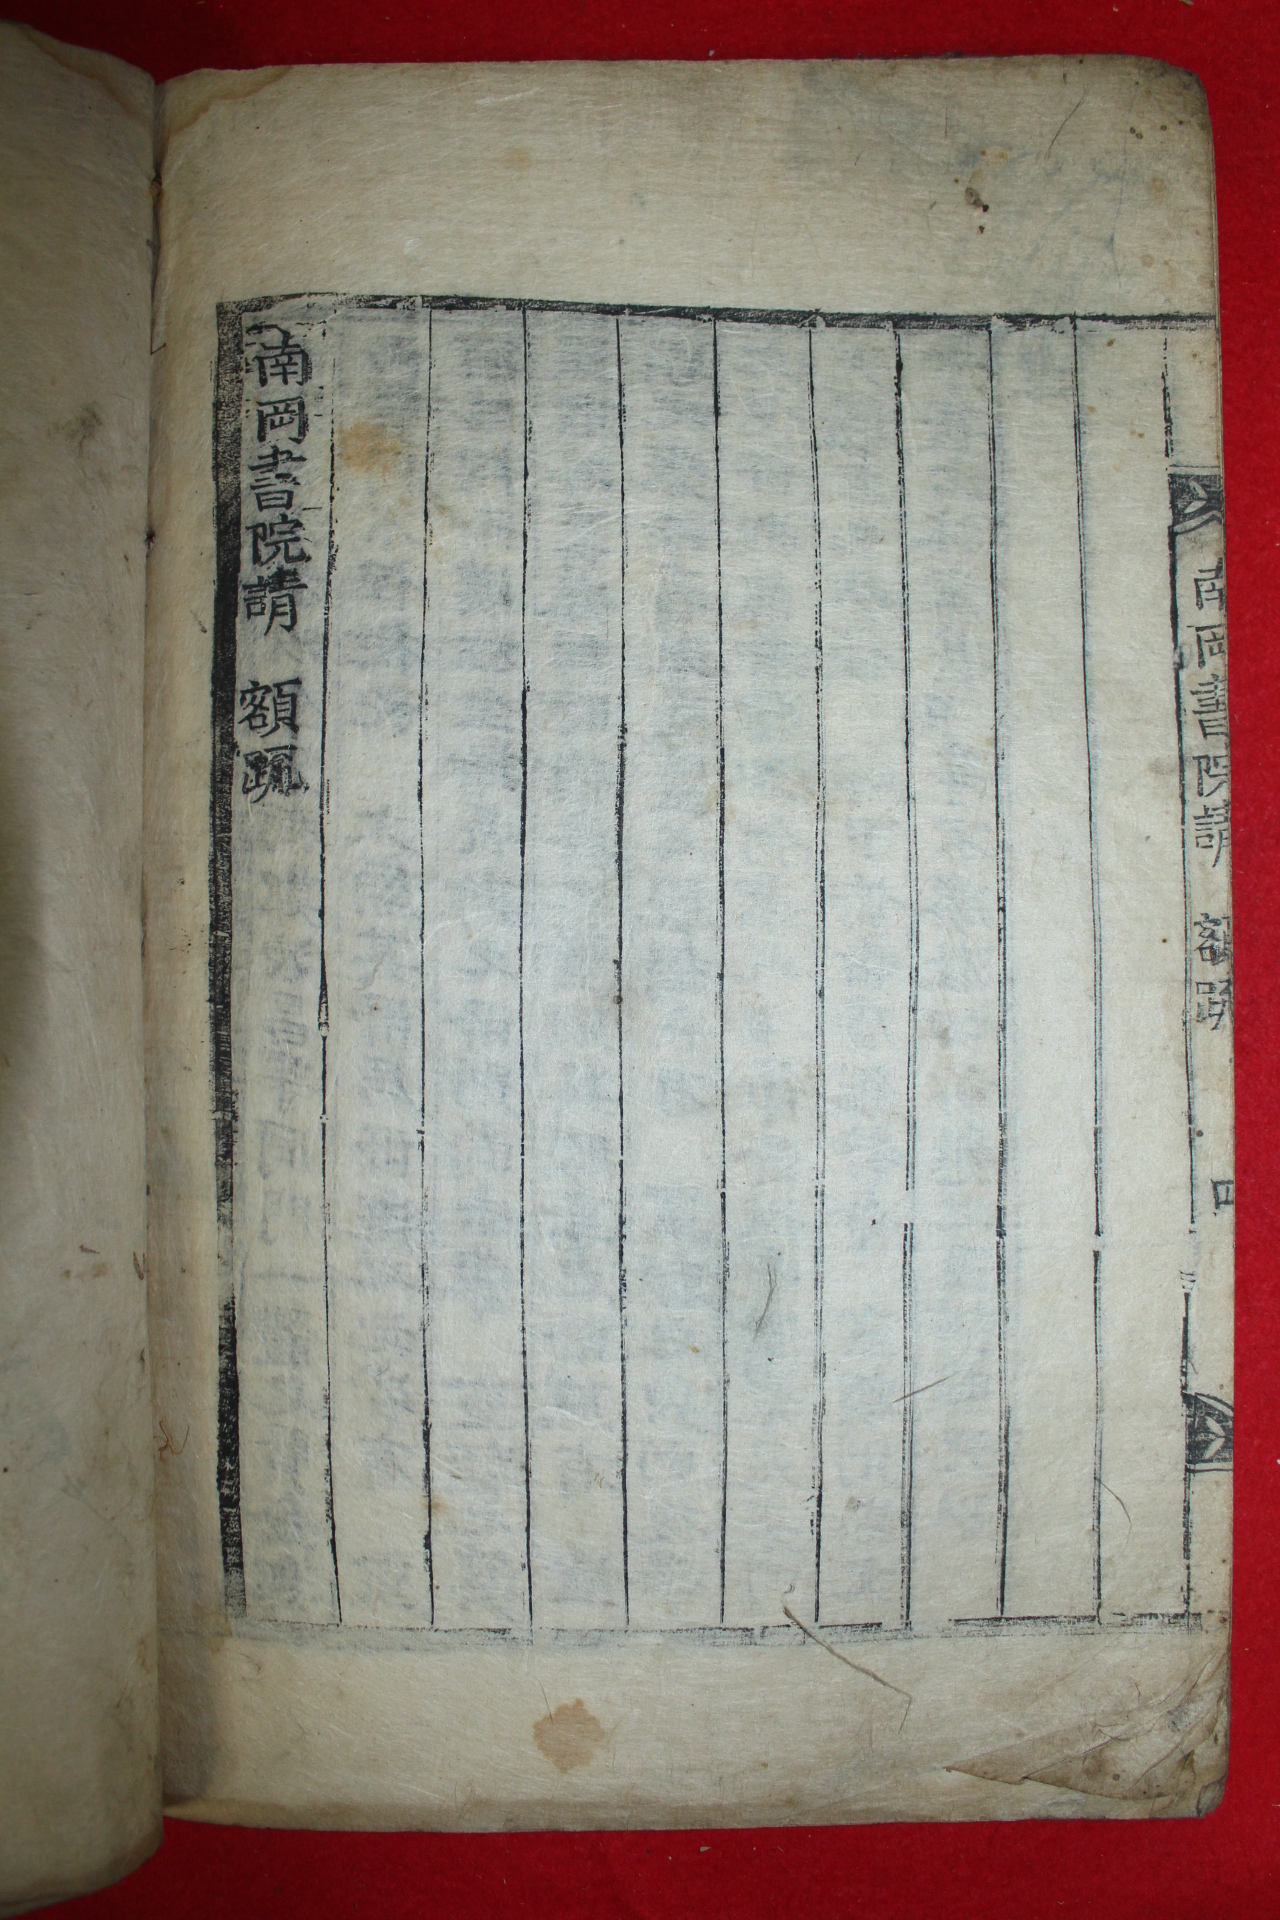 南岡書院請 額疏
南岡書院請 額疏 四